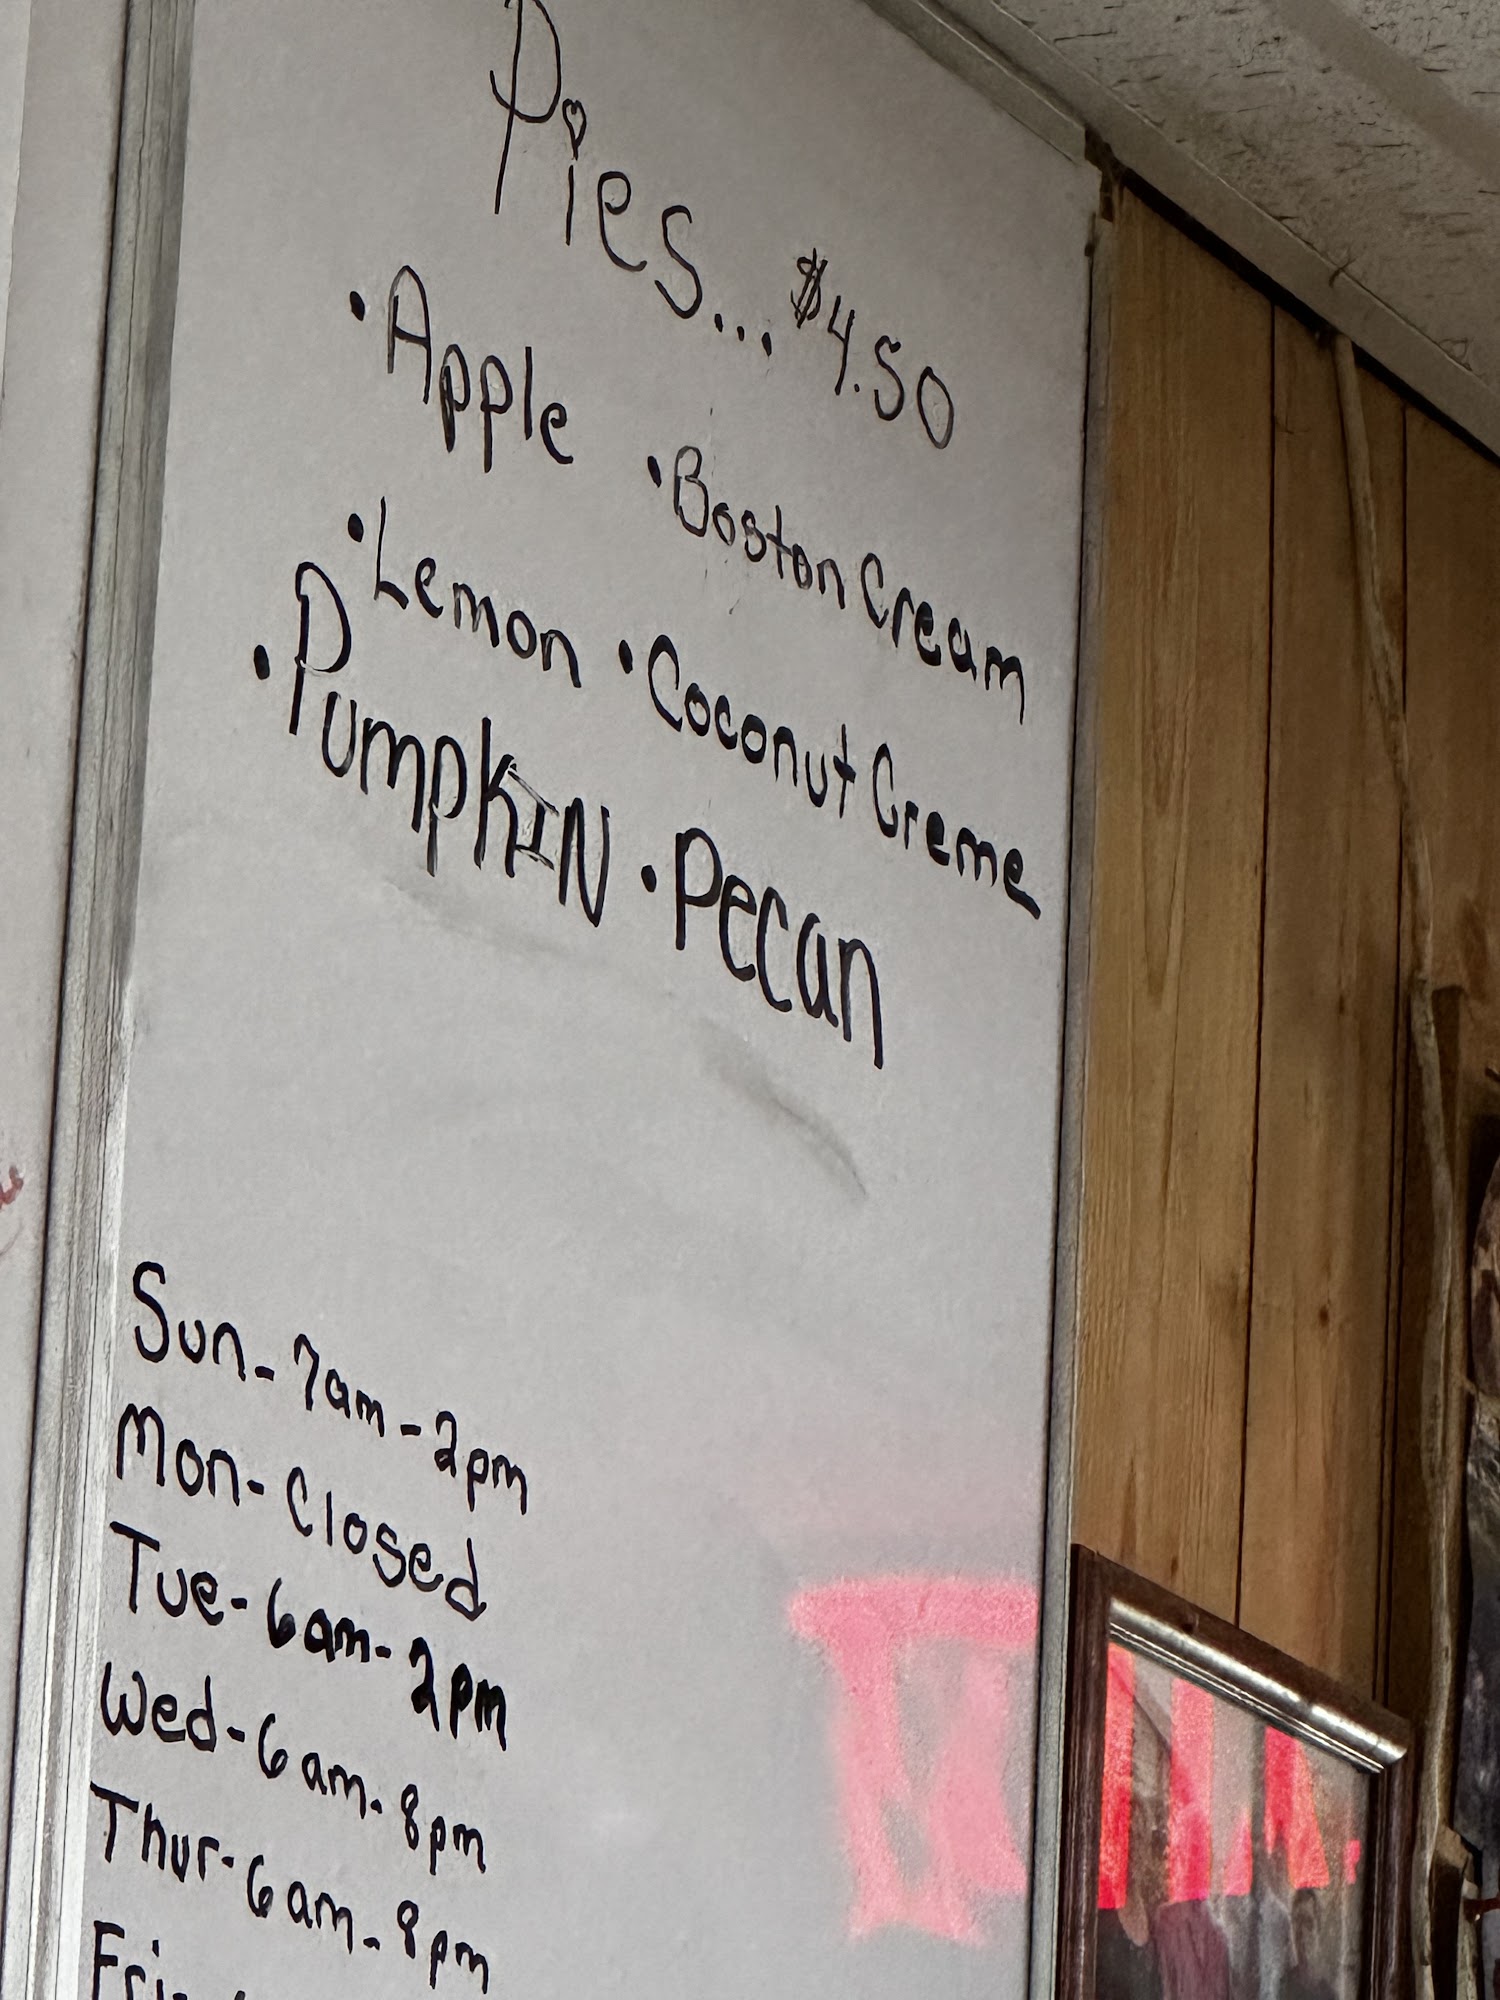 Pies... $4.50
• Apple • Boston Cream
• Lemon • Coconut Creme
• PumpkIN • Pecan
Sun- 7am-2pm
Mon- Closed
Tue- 6am-2pm
Wed- 6am-8pm
Thur- 6am-8pm
Fri-